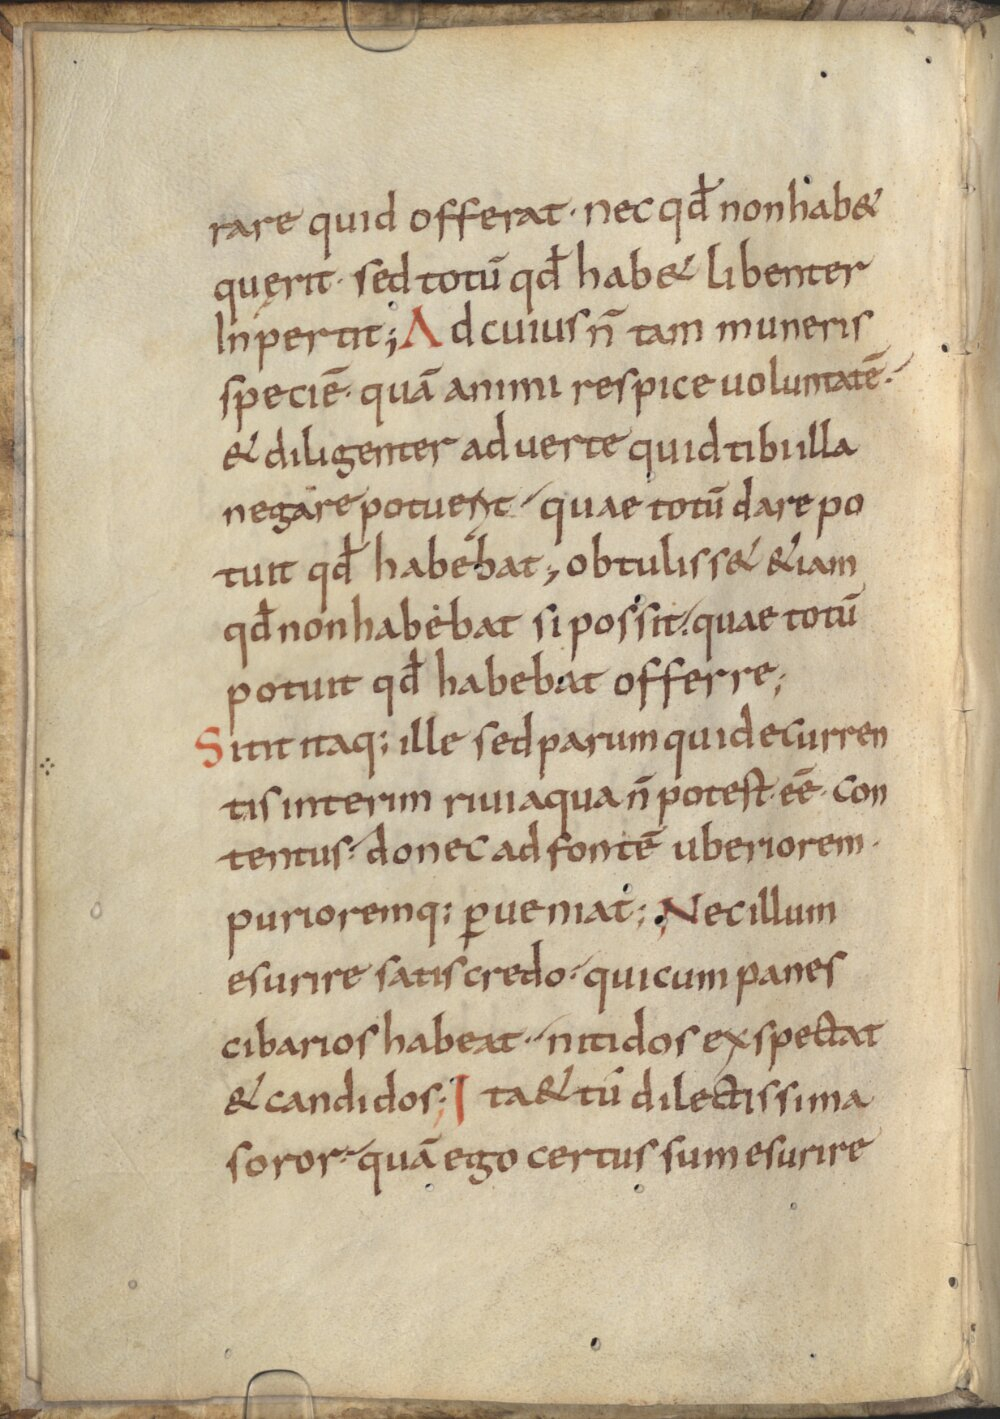 rare quid offerat · nec qđ non hab&
quęrit · sed totū qđ hab& libenter
Inpertit; Ad cuius n̄ tam muneris
speciē · quā animi respice uoluntatē ·
& diligenter aduerte quid tibi illa
negare potuerit · quae totū dare po
tuit qđ habebat; obtuliss& &iam
qđ non habebat si possit · quae totū
potuit qđ habebat offerre;
Sitit itaq; ille sed parum qui decurren
tis interim riui aqua n̄ potest eē · con
tentus · donec ad fontē uberiorem ·
purioremq; ꝑueniat; Nec illum
esurire satis credo · qui cum panes
cibarios habeat · nitidos exspectat
& candidos; Ita & tū dilectissima
soror · quā ego certus sum esurire